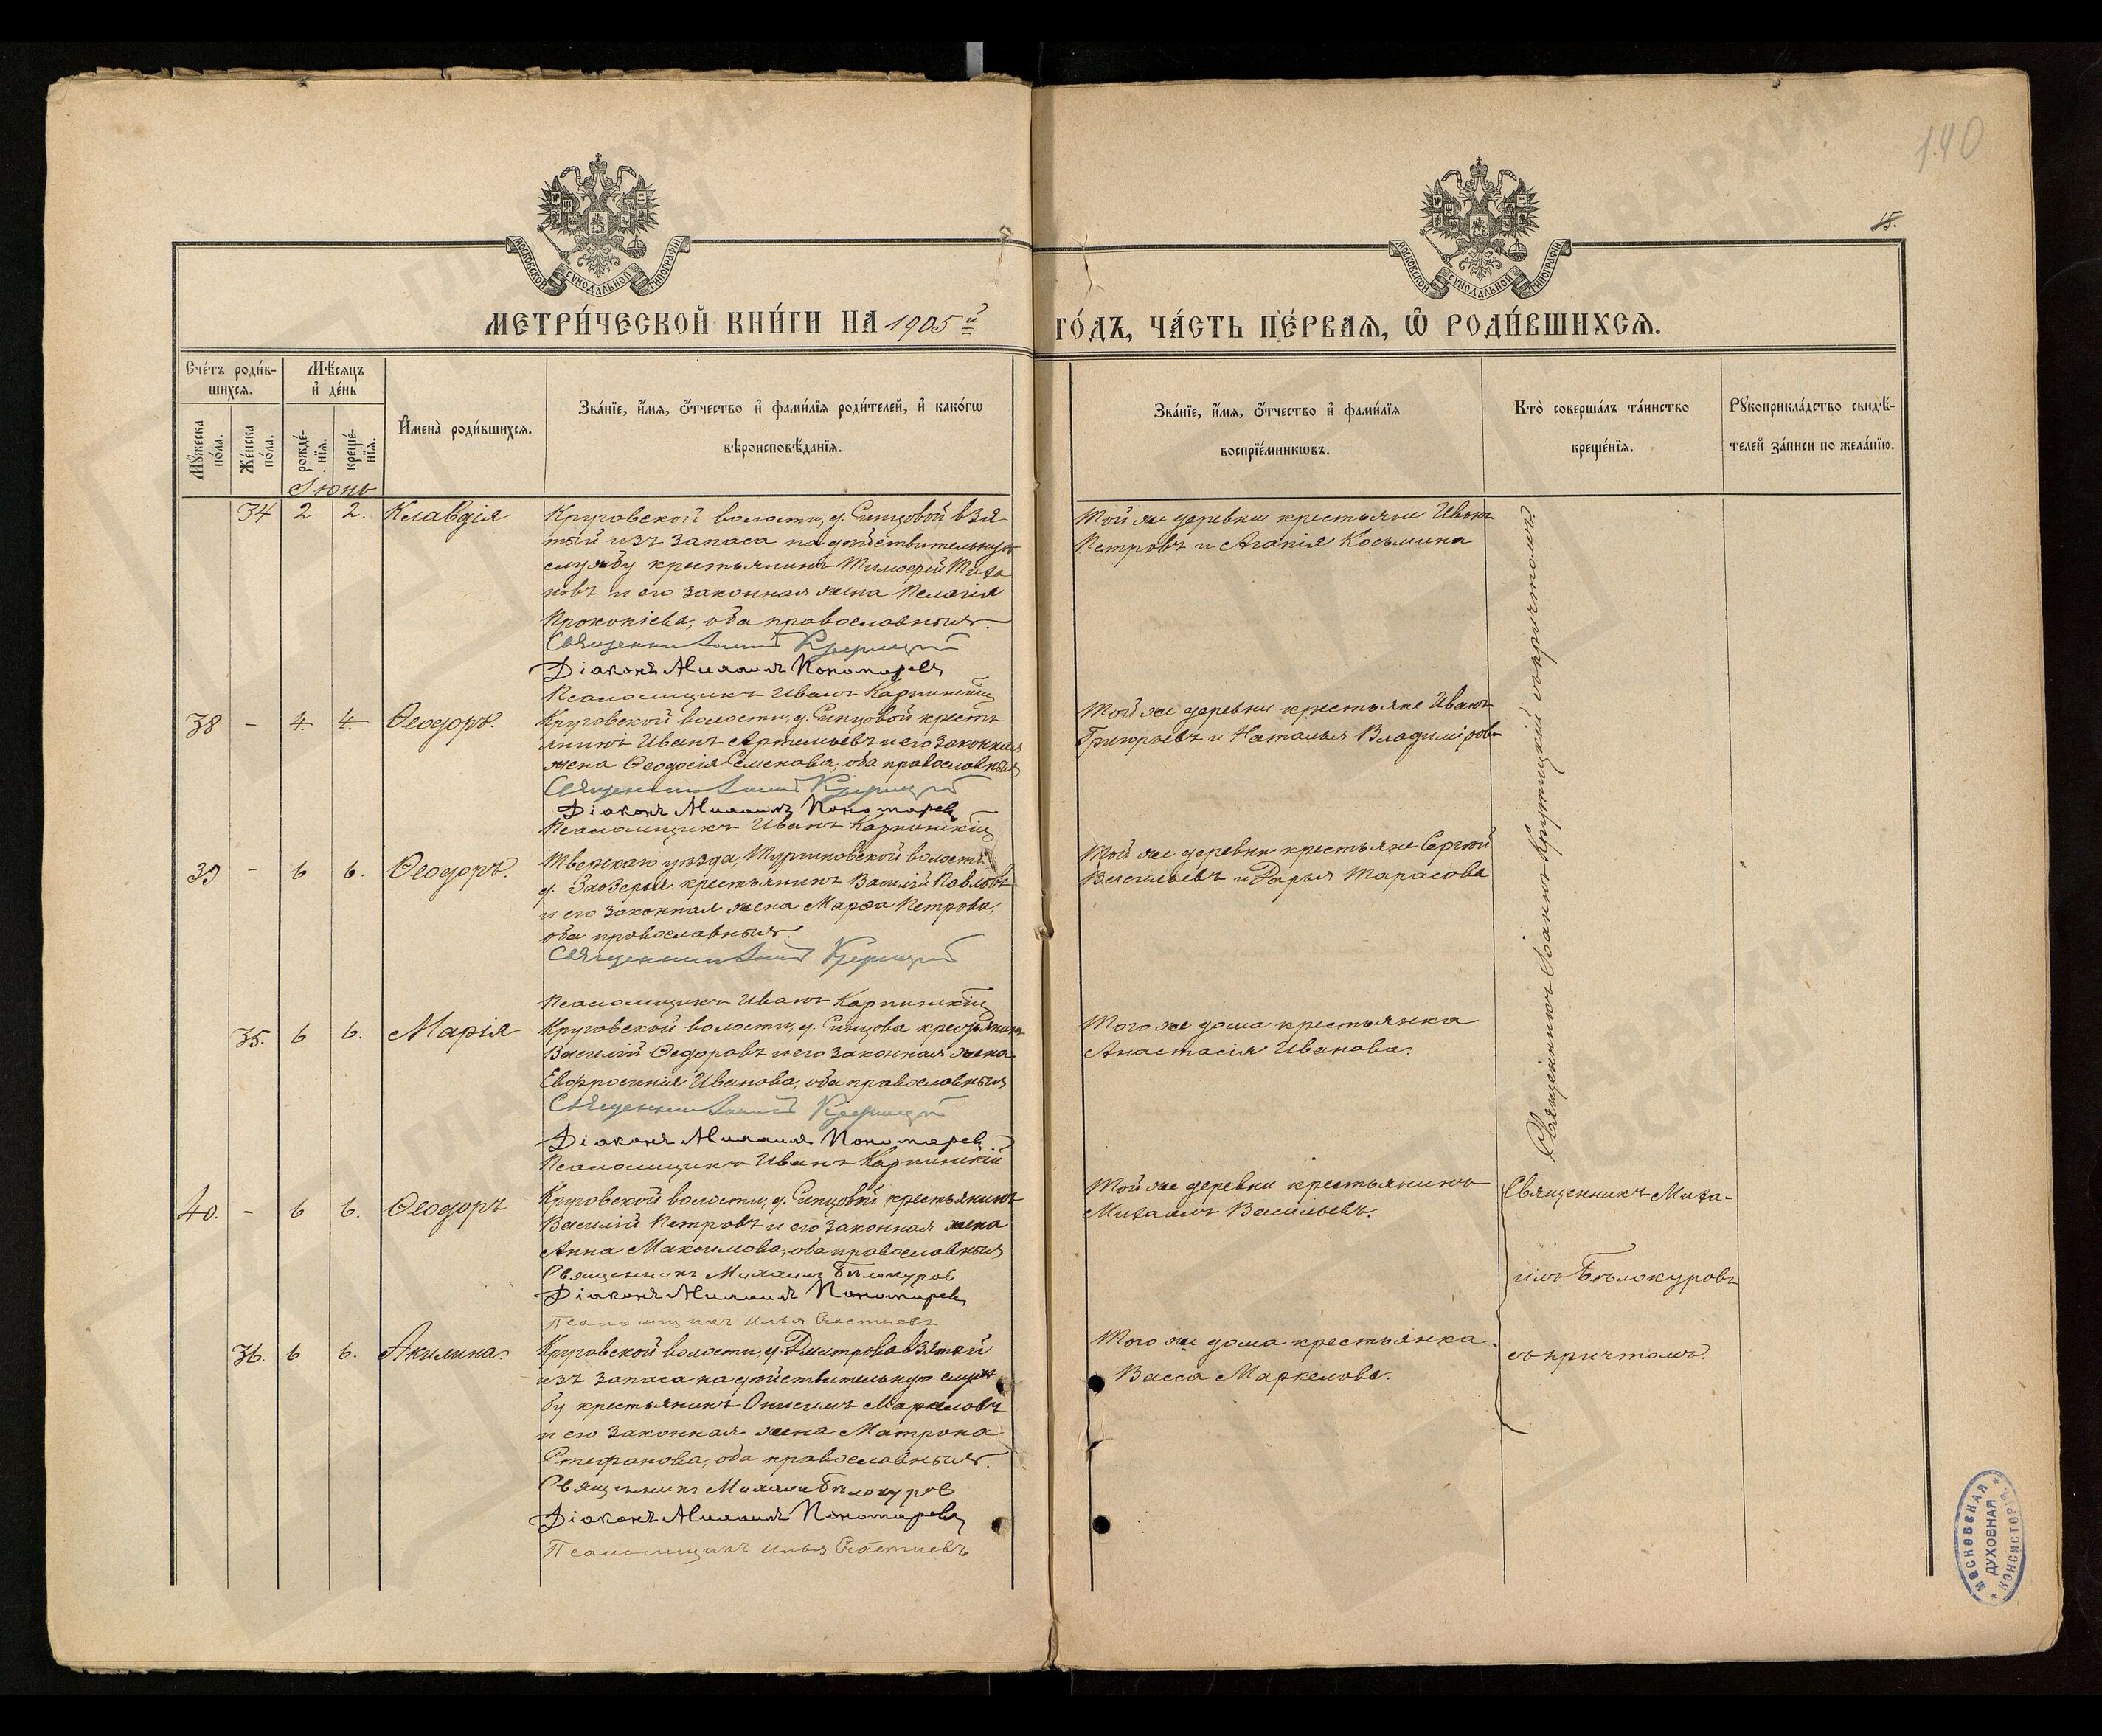 140
15.
МОСКОВСКОЙ СУНОДАЛЬНОЙ ТИПОГРАФІИ
МОСКОВСКОЙ СУНОДАЛЬНОЙ ТИПОГРАФІИ
МЕТРИ́ЧЕСКОЙ КНИ́ГИ НА 1905й ГО́ДЪ, ЧА́СТЬ ПЕ́РВАЯ, Ѽ РОДИ́ВШИХСЯ.
Сче́тъ роди́в-
шихся.
Мѣ́сяцъ
и҆ де́нь
Мꙋ́жеска
по́ла.
Же́нска
по́ла.
рожде́-
нїя.
креще́-
нїя.
И҆мена̀ роди́вшихся.
Зва́нїе, и҆́мя, ѻ҆́тчество и҆ фами́лїя роди́телей, и҆ како́гѡ
вѣроисповѣ́данїя.
Зва́нїе, и҆́мя, ѻ҆́тчество и҆ фами́лїя
воспрїе́мникѡвъ.
Кто̀ соверша́лъ та́инство
креще́нїя.
Рꙋкоприкла́дство свидѣ́-
телей за́писи по жела́нїю.
Іюнь
34 2 2. Клавдія
Круговской волости, д. Синцовой взя
тый изъ запаса на дѣйствительную
службу крестьянинъ Тимоѳей Тиха
новъ и его законная жена Пелагія
Прокопіева, оба православныя.
Священникъ Крутицкій
Діаконъ Михаилъ Пономаревъ
Псаломщикъ Иванъ Карпинскій
Той же деревни крестьяне Иванъ
Петровъ и Агапія Косьмина
38 - 4. 4. Ѳеодоръ.
Круговской волости, д. Синцовой кресть
янинъ Иванъ Артемьевъ и его законная
жена Ѳеодосія Семенова, оба православныя
Священникъ Крутицкій
Діаконъ Михаилъ Пономаревъ
Псаломщикъ Иванъ Карпинскій
Той же деревни крестьяне Иванъ
Григорьевъ и Наталья Владимірова
39 - 6 6. Ѳеодоръ.
Тверскаго уѣзда, волости
д. Заозерья крестьянинъ Василій Павловъ
и его законная жена Марѳа Петрова,
оба православныя.
Священникъ Крутицкій
Псаломщикъ Иванъ Карпинскій
Той же деревни крестьяне Сергѣй
Васильевъ и Дарья Тарасова
35. 6 6. Марія
Круговской волости, д. Синцова крестьянинъ
Василій Ѳедоровъ и его законная жена
Евфросинія Иванова, оба православныя
Священникъ Крутицкій
Діаконъ Михаилъ Пономаревъ
Псаломщикъ Иванъ Карпинскій
Того же дома крестьянка
Анастасія Иванова.
Священникъ Іоаннъ Крутицкій съ причтомъ.
40. - 6 6. Ѳеодоръ
Круговской волости, д. Синцовой крестьянинъ
Василій Петровъ и его законная жена
Анна Максимова, оба православныя
Священникъ Михаилъ Бѣлокуров
Діаконъ Михаилъ Пономаревъ
Псаломщикъ Илья Счастневъ
Той же деревни крестьянинъ
Михаилъ Васильевъ.
Священникъ Миха-
илъ Бѣлокуровъ
съ причтомъ.
36. 6 6. Акилина.
Круговской волости, д. Дмитрова взятый
изъ запаса на дѣйствительную служ
бу крестьянинъ Онисимъ Маркеловъ
и его законная жена Матрона
Стефанова, оба православныя.
Священникъ Михаилъ Бѣлокуров
Діаконъ Михаилъ Пономаревъ
Псаломщикъ Илья Счастневъ
Того же дома крестьянка
Васса Маркелова.
МОСКОВСКАЯ ДУХОВНАЯ КОНСИСТОРІЯ
ГЛАВАРХИВ
МОСКВЫ